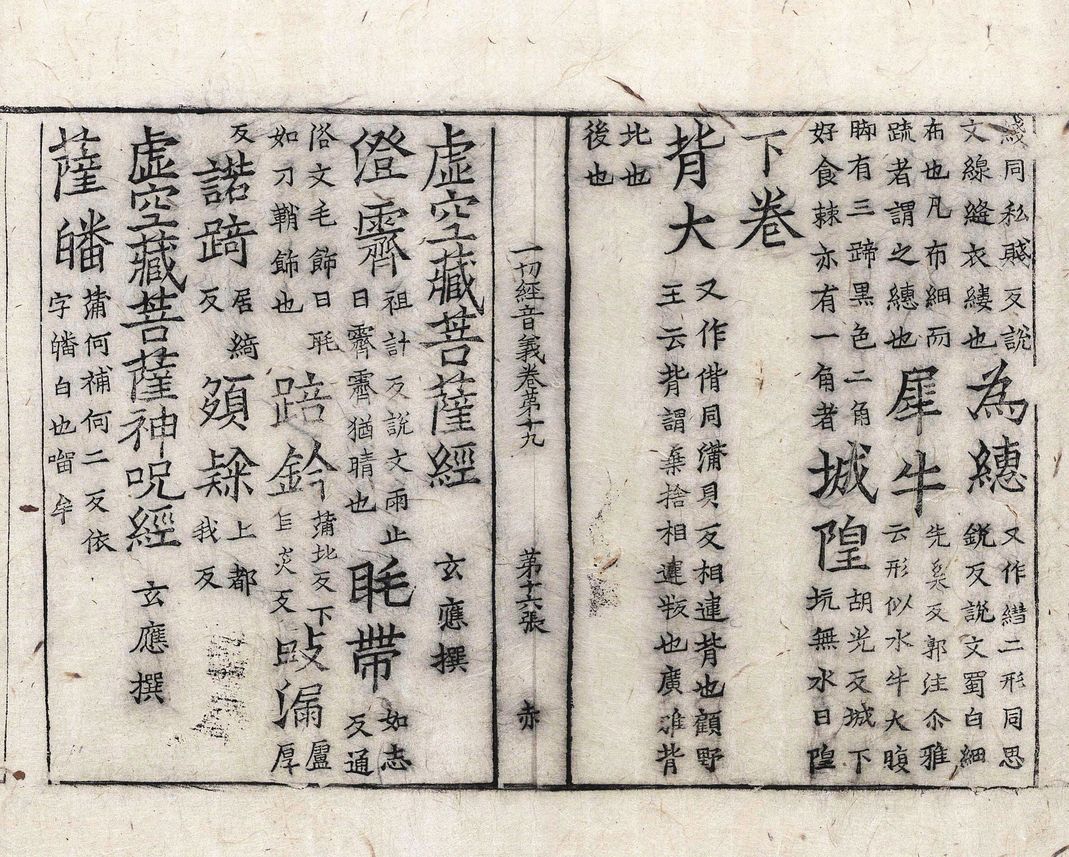 綫同私賤反說
文線縫衣縷也
為繐
又作繐二形同思
銳反說文蜀白細
布也凡布細而
疏者謂之繐也
犀牛
先奚反郭注尒雅
云形似水牛大腹
脚有三蹄黑色二角
好食棘亦有一角者
城隍
胡光反城下
坑無水曰隍
下卷
背大
又作偝同蒲貝反相連背也顧野
王云背謂棄捨相違叛也廣雅背
北也
後也
一切經音義卷第十九
第十六張
赤
虛空藏菩薩經
玄應撰
澄霽
祖計反說文雨止
曰霽霽猶晴也
毦帶
如志
反通
俗文毛飾曰毦
如刀鞘飾也
踣鈐
蒲北反下
炎反
漏
盧
厚
反
諾踦
居綺
反
頞
上都
我反
虛空藏菩薩神呪經
玄應撰
薩皤
蒲何補何二反依
字皤白也